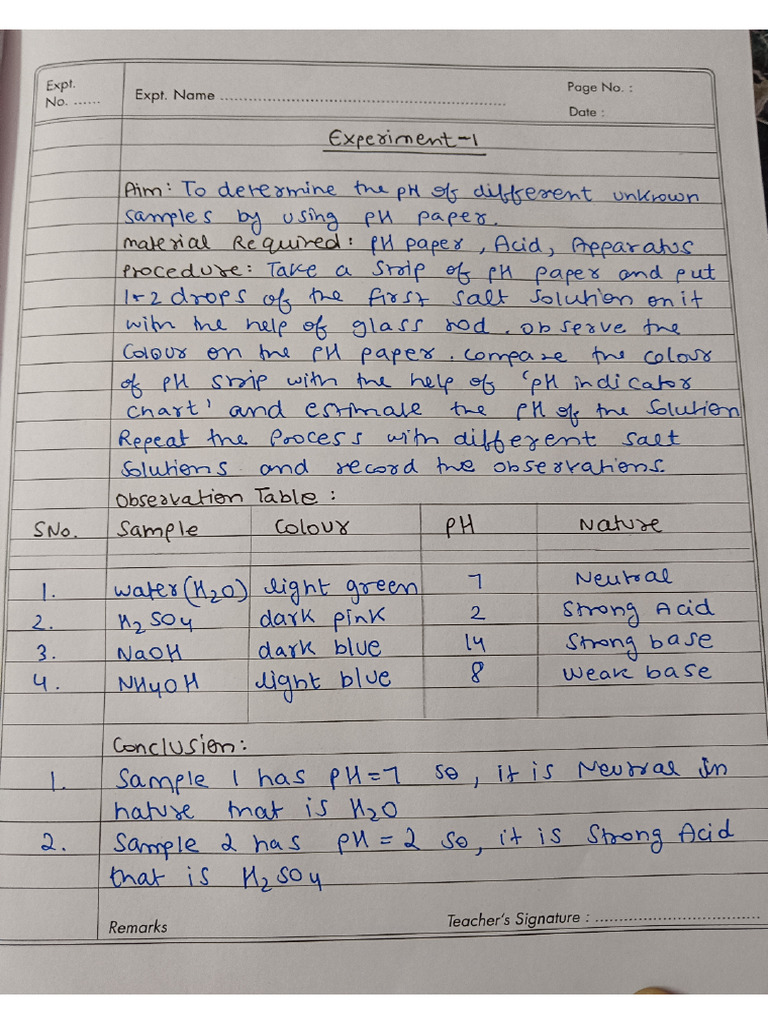 Expt. No. ......
Expt. Name ............................................................
Page No. :
Date :
Experiment-1
Aim: To determine the pH of different unknown
samples by using pH paper.
Material Required: pH paper, Acid, Apparatus
Procedure: Take a Strip of pH paper and put
1-2 drops of the first salt solution on it
with the help of glass rod. observe the
Colour on the pH paper. compare the colour
of pH strip with the help of 'pH indicator
chart' and estimate the pH of the solution
Repeat the Process with different salt
solutions and record the observations.
Observation Table :
SNo. Sample Colour PH Nature
1. water(H2O) light green 7 Neutral
2. H2SO4 dark pink 2 Strong Acid
3. NaOH dark blue 14 Strong base
4. NH4OH light blue 8 Weak base
Conclusion:
1. Sample 1 has pH=7 so, it is Neutral in
nature that is H2O
2. Sample 2 has pH = 2 so, it is Strong Acid
that is H2SO4
Remarks
Teacher's Signature : ....................................